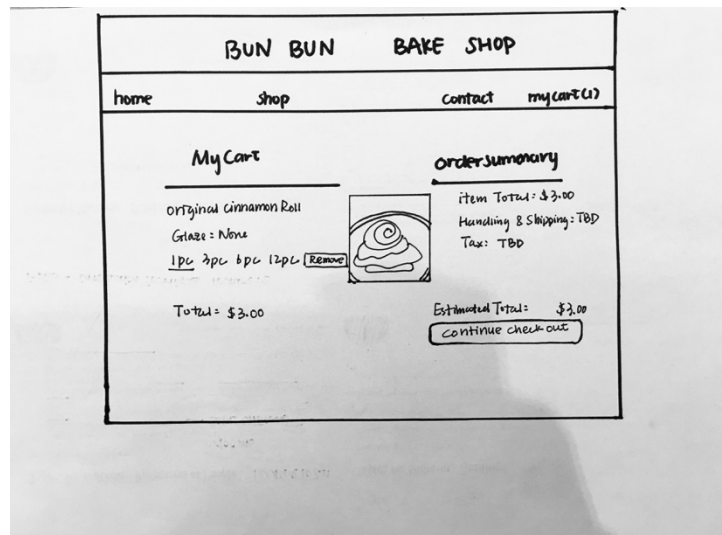 BUN BUN BAKE SHOP
home shop contact my cart (1)
My Cart
original Cinnamon Roll
Glaze: None
1pc 3pc 6pc 12pc Remove
Total: $3.00
order summary
item Total: $3.00
Handling & Shipping: TBD
Tax: TBD
Estimated Total: $3.00
continue check out